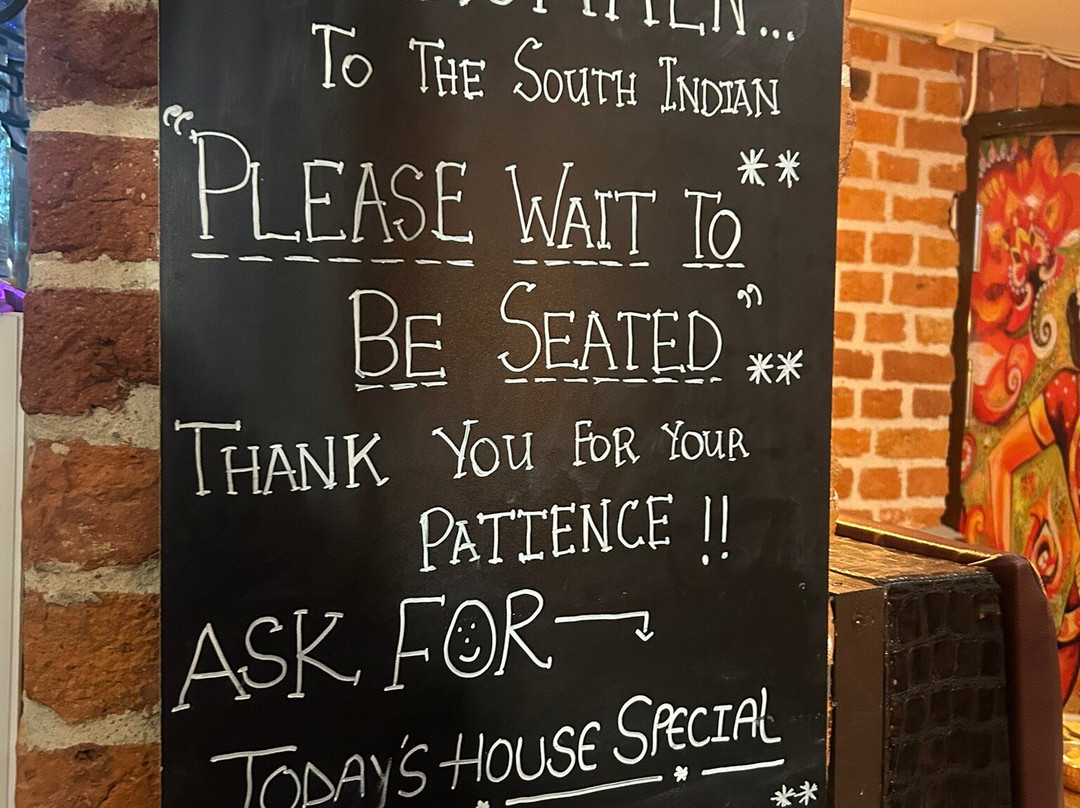 To The South Indian
“Please Wait To **
Be Seated” **
Thank You For Your
Patience !!
ASK FOR
TODAY'S HOUSE SPECIAL
**